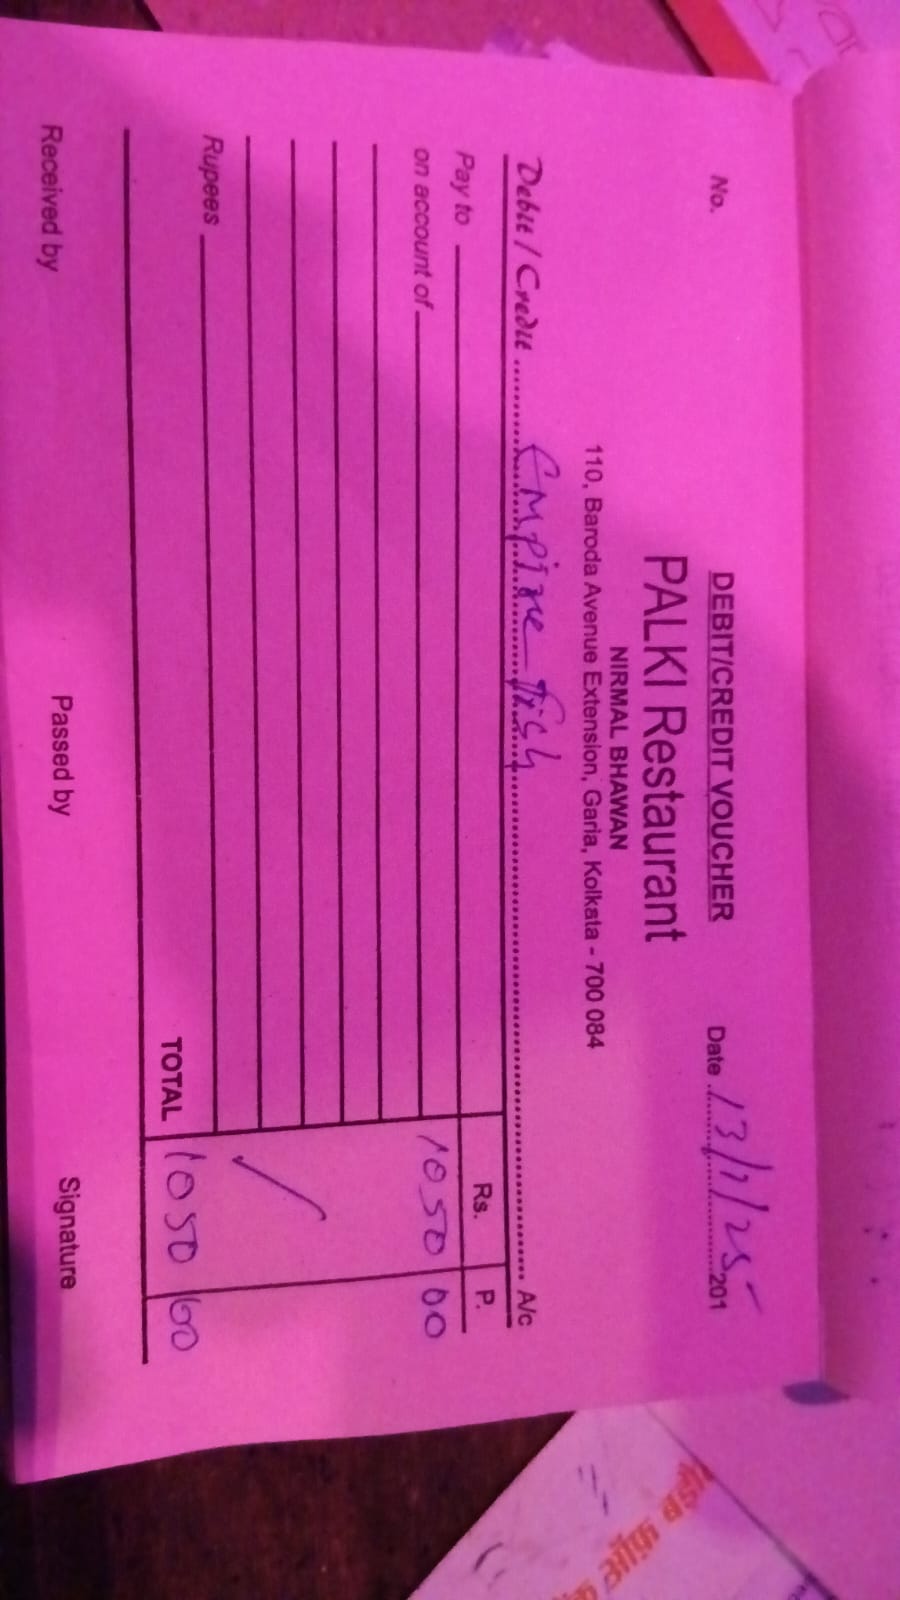 DEBIT/CREDIT VOUCHER
No. Date 13/1/25 201
PALKI Restaurant
NIRMAL BHAWAN
110, Baroda Avenue Extension, Garia, Kolkata - 700 084
Debit / Credit Empire Fish A/c
Pay to Rs. P.
on account of 1050 00
Rupees
TOTAL 1050 00
Received by Passed by Signature
ऑफ़ बड़ौ